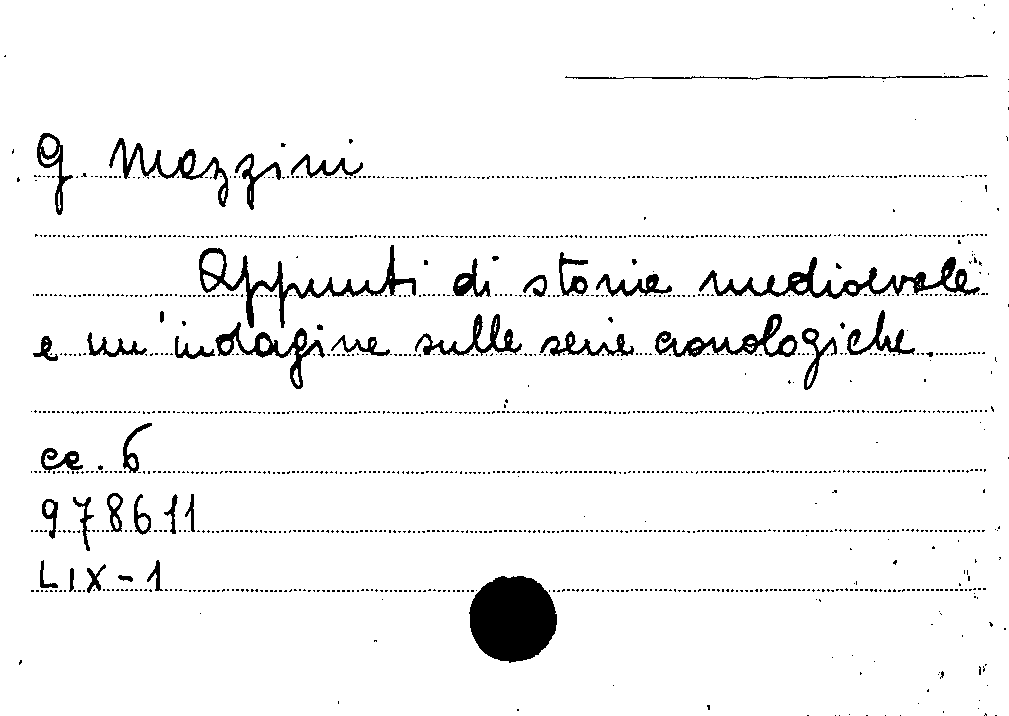 G. Mazzini
Appunti di storia medioevale
e un'indagine sulle serie cronologiche.
cc. 6
978611
LIX-1